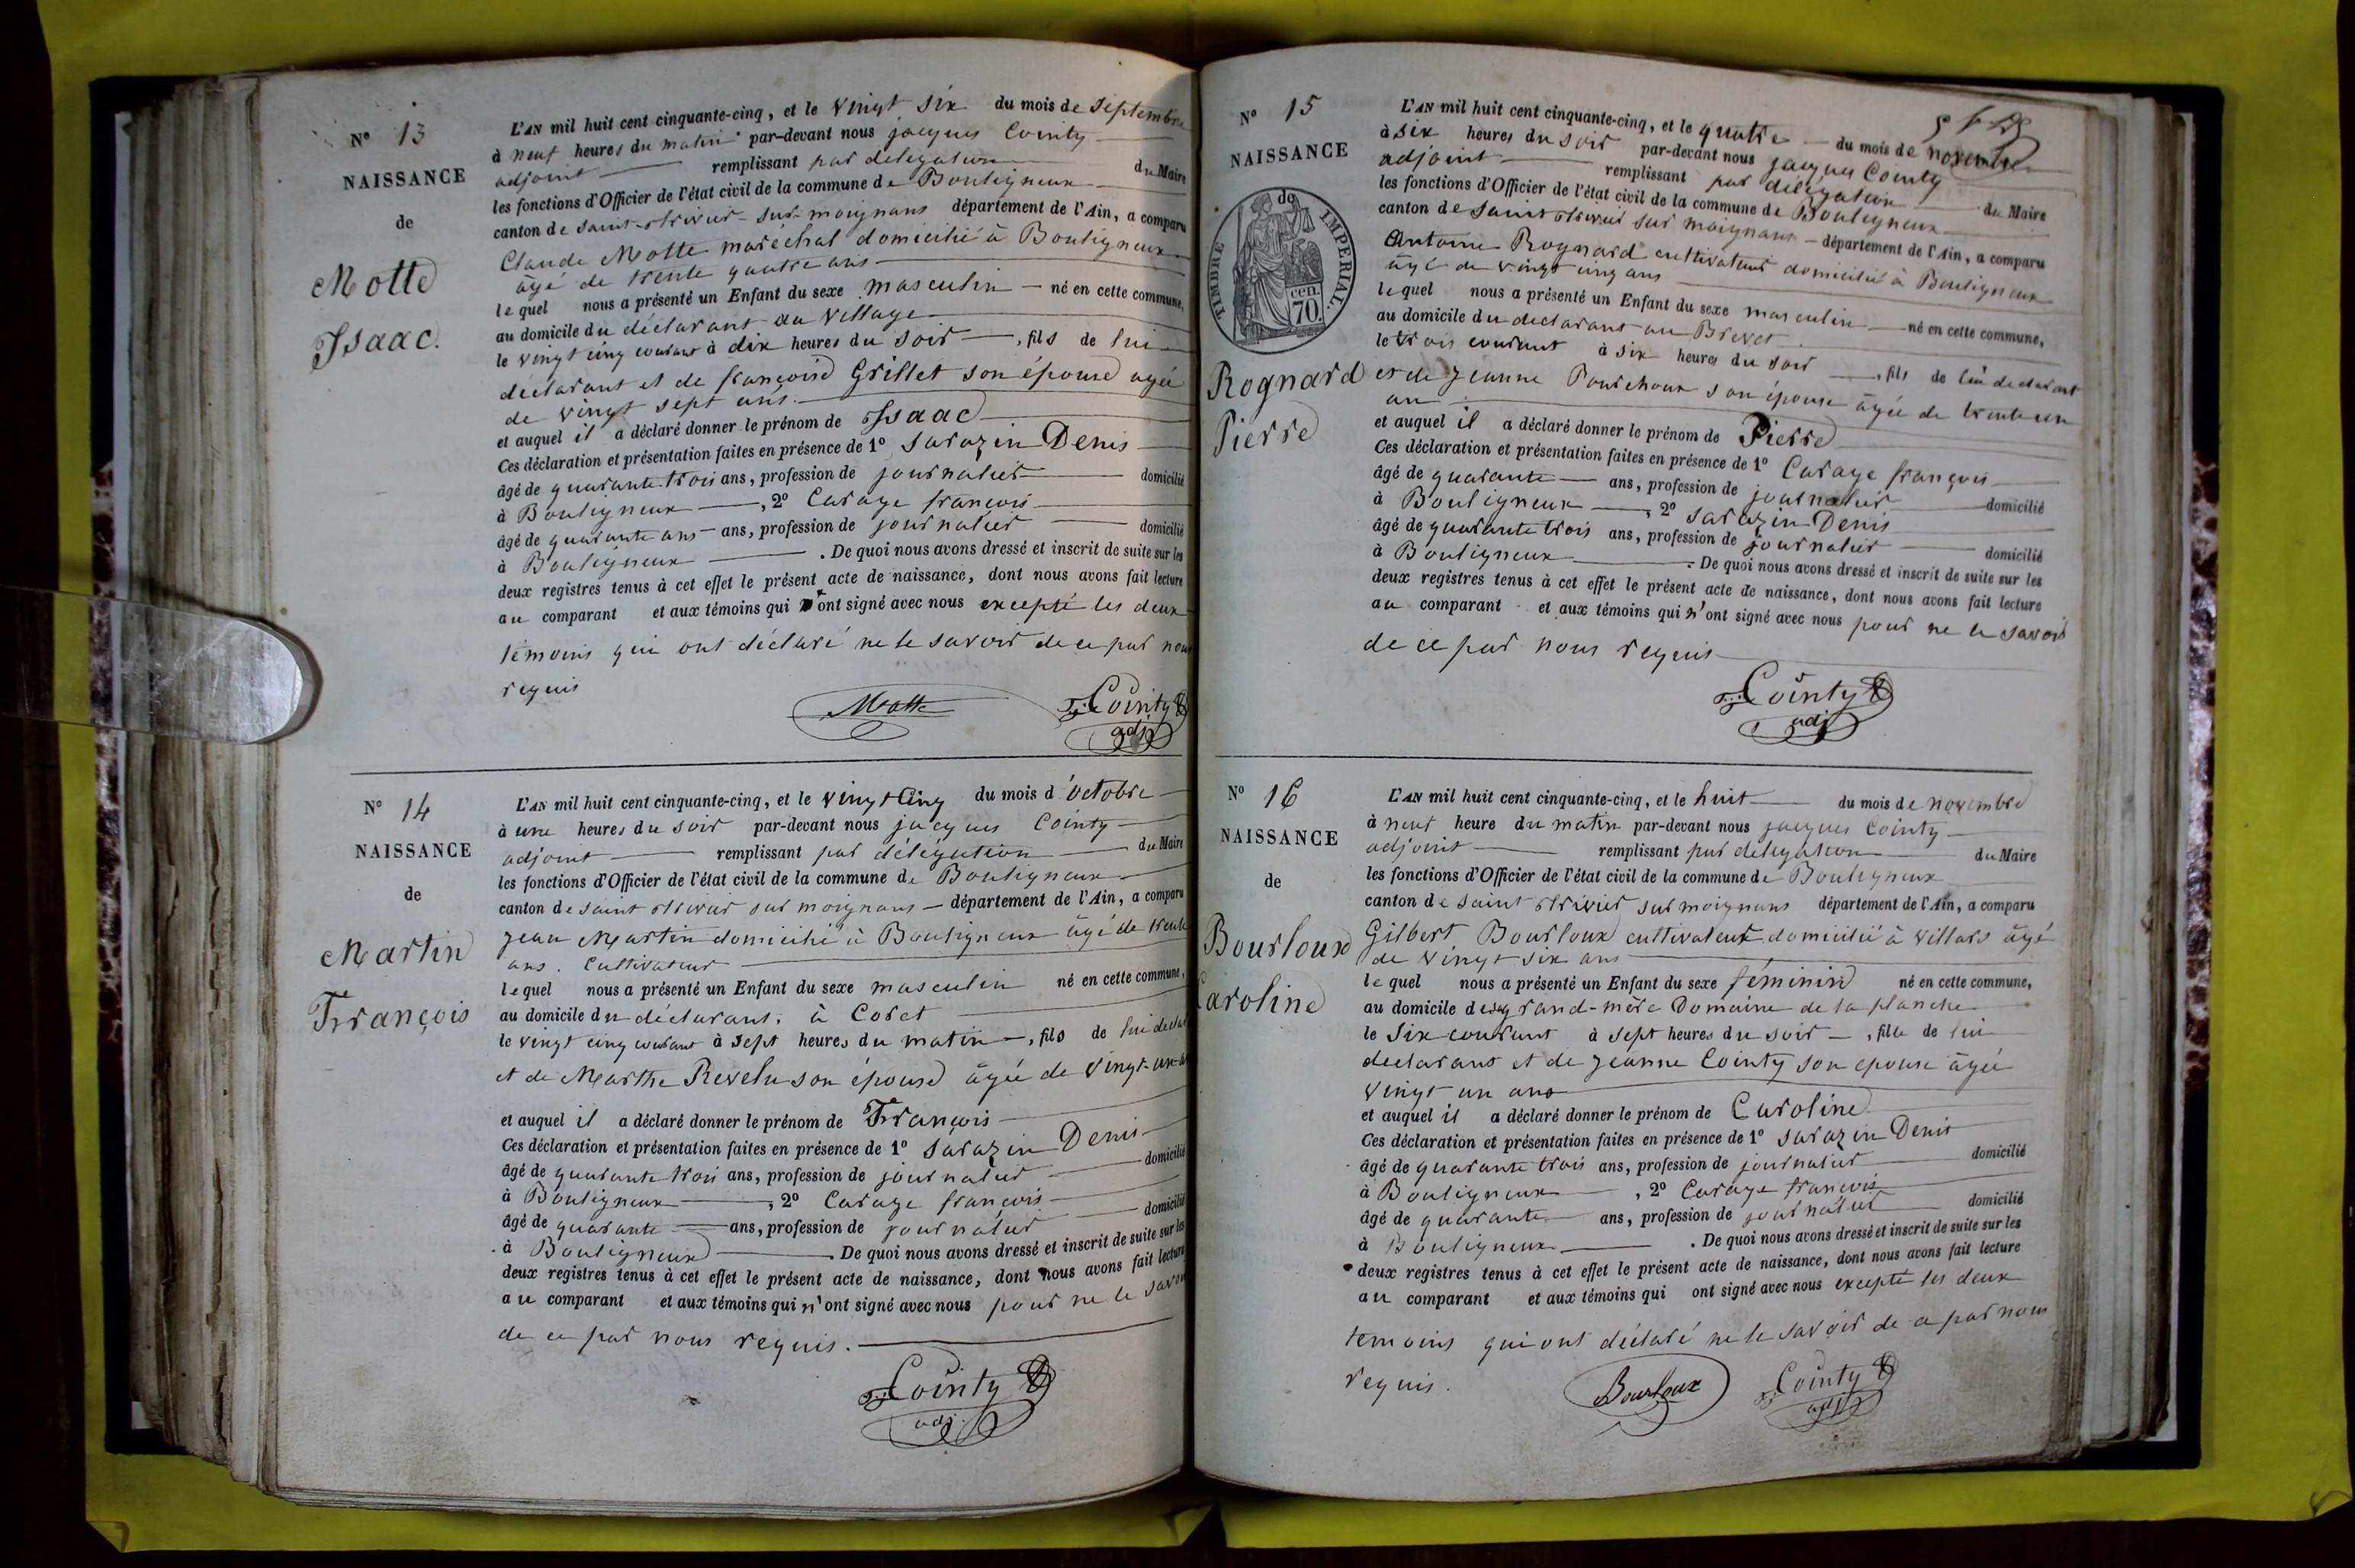 N° 13
NAISSANCE
de
Motte
Isaac.
L'AN mil huit cent cinquante-cinq, et le vingt six du mois de Septembre
à neuf heures du matin par-devant nous jacques Cointy
adjoint remplissant par délégation du Maire
les fonctions d'Officier de l'état civil de la commune de Bouligneux
canton de saint-trivier-sur-moignans département de l'Ain, a comparu
Claude Motte maréchal domicilié à Bouligneux
âgé de trente quatre ans
lequel nous a présenté un Enfant du sexe masculin né en cette commune,
au domicile du déclarant au village
le vingt cinq courant à dix heures du soir, fils de lui
déclarant et de françoise Grillet son épouse agée
de vingt sept ans.
et auquel il a déclaré donner le prénom de Isaac
Ces déclaration et présentation faites en présence de 1° Sarazin Denis
âgé de quarante trois ans, profession de journalier domicilié
à Bouligneux, 2° Carage françois
âgé de quarante ans ans, profession de journalier domicilié
à Bouligneux. De quoi nous avons dressé et inscrit de suite sur les
deux registres tenus à cet effet le présent acte de naissance, dont nous avons fait lecture
au comparant et aux témoins qui ont signé avec nous excepté les deux
témoins qui ont déclaré ne le savoir de ce par nous
requis
Motte Cointy
adj
N° 14
NAISSANCE
de
Martin
François
L'AN mil huit cent cinquante-cinq, et le vingt Cinq du mois d'octobre
à une heures du soir par-devant nous jacques Cointy
adjoint remplissant par délégation du Maire
les fonctions d'Officier de l'état civil de la commune de Bouligneux
canton de saint trivier sur moignans département de l'Ain, a comparu
jean Martin domicilié à Bouligneux âgé de trente
ans. Cultivateur
lequel nous a présenté un Enfant du sexe masculin né en cette commune,
au domicile du déclarant, à Coret
le vingt cinq courant à sept heures du matin, fils de lui
et de Marthe Revelu son épouse âgée de vingt-un
et auquel il a déclaré donner le prénom de François
Ces déclaration et présentation faites en présence de 1° Sarazin Denis
âgé de quarante trois ans, profession de journalier domicilié
à Bouligneux, 2° Carage françois
âgé de quarante ans, profession de journalier domicilié
à Bouligneux. De quoi nous avons dressé et inscrit de suite sur les
deux registres tenus à cet effet le présent acte de naissance, dont nous avons fait lecture
au comparant et aux témoins qui n'ont signé avec nous pour ne le savoir
de ce par nous requis.
Cointy
adj.
N° 15
NAISSANCE
de
TIMBRE IMPERIAL.
70 cen.
Rognard
Pierre
L'AN mil huit cent cinquante-cinq, et le quatre du mois de novembre
à six heures du soir par-devant nous jacques Cointy
adjoint remplissant par délégation du Maire
les fonctions d'Officier de l'état civil de la commune de Bouligneux
canton de saint trivier sur moignans département de l'Ain, a comparu
Antoine Rognard cultivateur domicilié à Bouligneux
âgé de vingt cinq ans
lequel nous a présenté un Enfant du sexe masculin né en cette commune,
au domicile du déclarant au Brevet
le trois courant à six heures du soir, fils de lui declarant
et de jeanne Pourchoux son épouse âgée de trente un
an
et auquel il a déclaré donner le prénom de Pierre
Ces déclaration et présentation faites en présence de 1° Carage françois
âgé de quarante ans, profession de journalier domicilié
à Bouligneux, 2° Sarazin Denis
âgé de quarante trois ans, profession de journalier domicilié
à Bouligneux. De quoi nous avons dressé et inscrit de suite sur les
deux registres tenus à cet effet le présent acte de naissance, dont nous avons fait lecture
au comparant et aux témoins qui n'ont signé avec nous pour ne le savoir
de ce par nous requis
Cointy
adj
N° 16
NAISSANCE
de
Bourloux
Caroline
L'AN mil huit cent cinquante-cinq, et le huit du mois de novembre
à neuf heure du matin par-devant nous jacques Cointy
adjoint remplissant par délégation du Maire
les fonctions d'Officier de l'état civil de la commune de Bouligneux
canton de saint trivier sur moignans département de l'Ain, a comparu
Gilbert Bourloux cultivateur domicilié à villars âgé
de vingt six ans
lequel nous a présenté un Enfant du sexe féminin né en cette commune,
au domicile de sa grand-mère Domaine de la planche
le six courant à sept heures du soir, fille de lui
declarant et de jeanne Cointy son epouse âgée
vingt un ans
et auquel il a déclaré donner le prénom de Caroline
Ces déclaration et présentation faites en présence de 1° Sarazin Denis
âgé de quarante trois ans, profession de journalier domicilié
à Bouligneux, 2° Carage françois
âgé de quarante ans, profession de journalier domicilié
à Bouligneux. De quoi nous avons dressé et inscrit de suite sur les
deux registres tenus à cet effet le présent acte de naissance, dont nous avons fait lecture
au comparant et aux témoins qui ont signé avec nous excepté les deux
temoins qui ont déclaré ne le savoir de ce par nous
requis.
Bourloux Cointy
adj